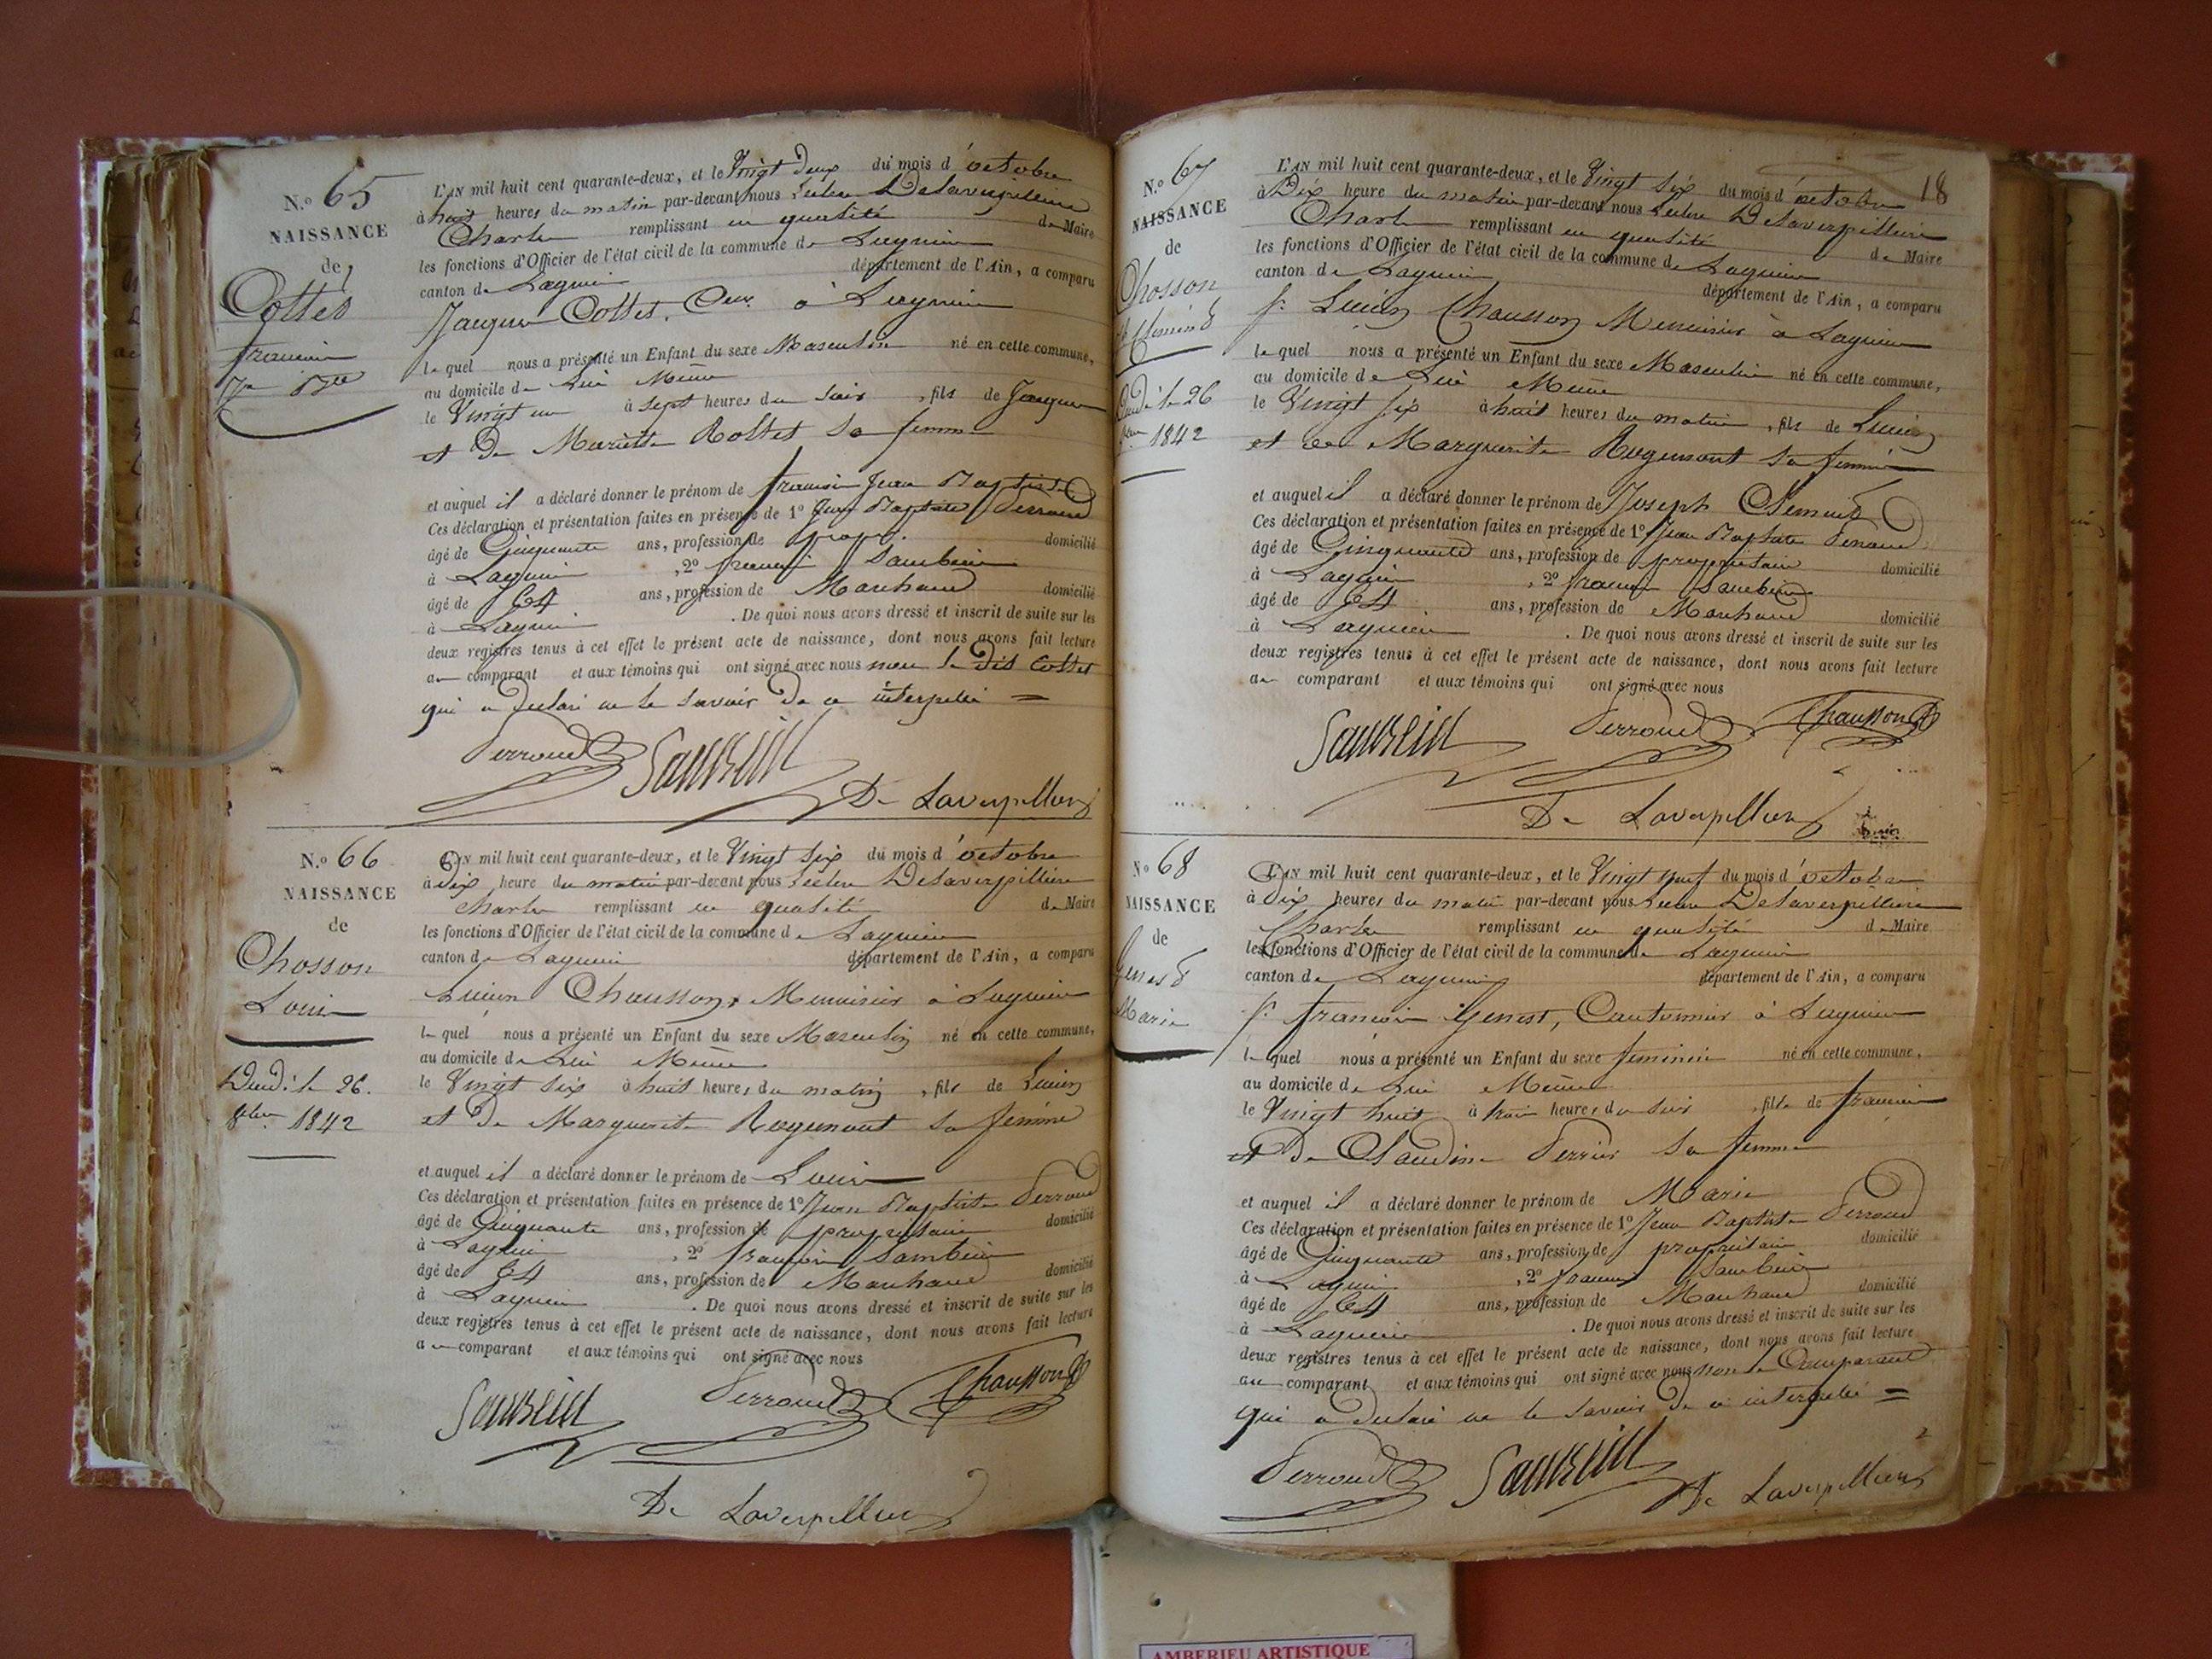 N.º 65
NAISSANCE
de
Cottet
francois
Jn Bte
L'AN mil huit cent quarante-deux, et le Vingt Deux du mois d'octobre
à huit heures du matin par-devant nous Delaverpilliere
Charles remplissant en qualité de Maire
les fonctions d'Officier de l'état civil de la commune de Lagnieu
canton de Lagnieu département de l'Ain, a comparu
Jacques Cottet, à Lagnieu
lequel nous a présenté un Enfant du sexe Masculin né en cette commune,
au domicile de Lui Même
le Vingt un à sept heures du soir, fils de Jacques
et De Mariette sa femme
et auquel il a déclaré donner le prénom de francois Jean Baptiste
Ces déclaration et présentation faites en présence de 1º Jean Baptiste Perroud
âgé de Cinquante ans, profession de propr. domicilié
à Lagnieu, 2º francois Sambein
âgé de 64 ans, profession de Marchand domicilié
à Lagnieu. De quoi nous avons dressé et inscrit de suite sur les
deux registres tenus à cet effet le présent acte de naissance, dont nous avons fait lecture
au comparant et aux témoins qui ont signé avec nous le dit Cottet
qui a declaré ne le savoir De ce interpellé =
Perroud
De Laverpilliere
N.º 66
NAISSANCE
de
Chosson
Louis
26.
8bre 1842
L'AN mil huit cent quarante-deux, et le Vingt six du mois d'octobre
à Dix heure du matin par-devant nous Delaverpilliere
Charles remplissant en qualité de Maire
les fonctions d'Officier de l'état civil de la commune de Lagnieu
canton de Lagnieu département de l'Ain, a comparu
Lucien Chausson, Menuisier à Lagnieu
lequel nous a présenté un Enfant du sexe Masculin né en cette commune,
au domicile de Lui Même
le Vingt six à huit heures du matin, fils de Lucien
et De Marguerite Rugemont sa femme
et auquel il a déclaré donner le prénom de Louis
Ces déclaration et présentation faites en présence de 1º Jean Baptiste Perroud
âgé de Cinquante ans, profession de propriétaire domicilié
à Lagnieu, 2º francois Sambein
âgé de 64 ans, profession de Marchand domicilié
à Lagnieu. De quoi nous avons dressé et inscrit de suite sur les
deux registres tenus à cet effet le présent acte de naissance, dont nous avons fait lecture
au comparant et aux témoins qui ont signé avec nous
Perroud Chausson
De Laverpilliere
18
N.º 67
NAISSANCE
de
Chosson
26
1842
L'AN mil huit cent quarante-deux, et le Vingt six du mois d'octobre
à Dix heure du matin par-devant nous Delaverpilliere
Charles remplissant en qualité de Maire
les fonctions d'Officier de l'état civil de la commune de Lagnieu
canton de Lagnieu département de l'Ain, a comparu
Lucien Chausson Menuisier à Lagnieu
lequel nous a présenté un Enfant du sexe Masculin né en cette commune,
au domicile de Lui Même
le Vingt six à huit heures du matin, fils de Lucien
et de Marguerite Rugemont sa femme
et auquel il a déclaré donner le prénom de Joseph Clement
Ces déclaration et présentation faites en présence de 1º Jean Baptiste Perroud
âgé de Cinquante ans, profession de propriétaire domicilié
à Lagnieu, 2º francois Sambein
âgé de 64 ans, profession de Marchand domicilié
à Lagnieu. De quoi nous avons dressé et inscrit de suite sur les
deux registres tenus à cet effet le présent acte de naissance, dont nous avons fait lecture
au comparant et aux témoins qui ont signé avec nous
Perroud Chausson
De Laverpilliere
Nº 68
NAISSANCE
de
Genest
Marie
L'AN mil huit cent quarante-deux, et le Vingt neuf du mois d'octobre
à dix heures du matin par-devant nous Delaverpilliere
Charles remplissant en qualité de Maire
les fonctions d'Officier de l'état civil de la commune de Lagnieu
canton de Lagnieu département de l'Ain, a comparu
francois Genest, Cantonnier à Lagnieu
lequel nous a présenté un Enfant du sexe feminin né en cette commune,
au domicile de Lui Même
le Vingt huit à trois heures du soir, fille de francois
et De Claudine Perrier sa femme
et auquel il a déclaré donner le prénom de Marie
Ces déclaration et présentation faites en présence de 1º Jean Baptiste Perroud
âgé de Cinquante ans, profession de propriétaire domicilié
à Lagnieu, 2º francois Sambein
âgé de 64 ans, profession de Marchand domicilié
à Lagnieu. De quoi nous avons dressé et inscrit de suite sur les
deux registres tenus à cet effet le présent acte de naissance, dont nous avons fait lecture
au comparant et aux témoins qui ont signé avec nous non le Comparant
qui a declaré ne le savoir De ce interpellé =
Perroud
De Laverpilliere
AMBERIEU ARTISTIQUE